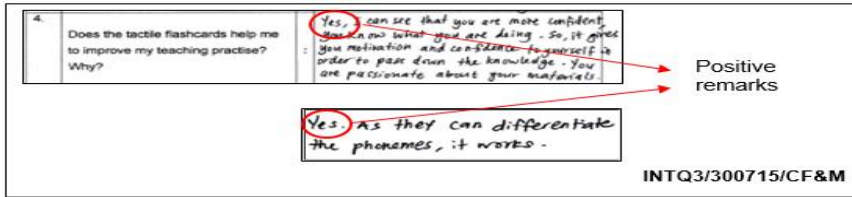 4.
Does the tactile flashcards help me
to improve my teaching practise?
Why?
:
Yes, I can see that you are more confident,
you know what you are doing. So, it gives
you motivation and confidence to yourself in
order to pass down the knowledge. You
are passionate about your materials.
Positive
remarks
Yes. As they can differentiate
the phonemes, it works.
INTQ3/300715/CF&M